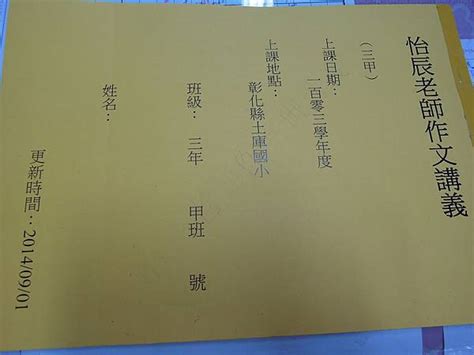 怡辰老師作文講義
（三甲）
上課日期：
一百零三學年度
上課地點：
彰化縣土庫國小
班級： 三年 甲班 號
姓名：
更新時間：2014/09/01